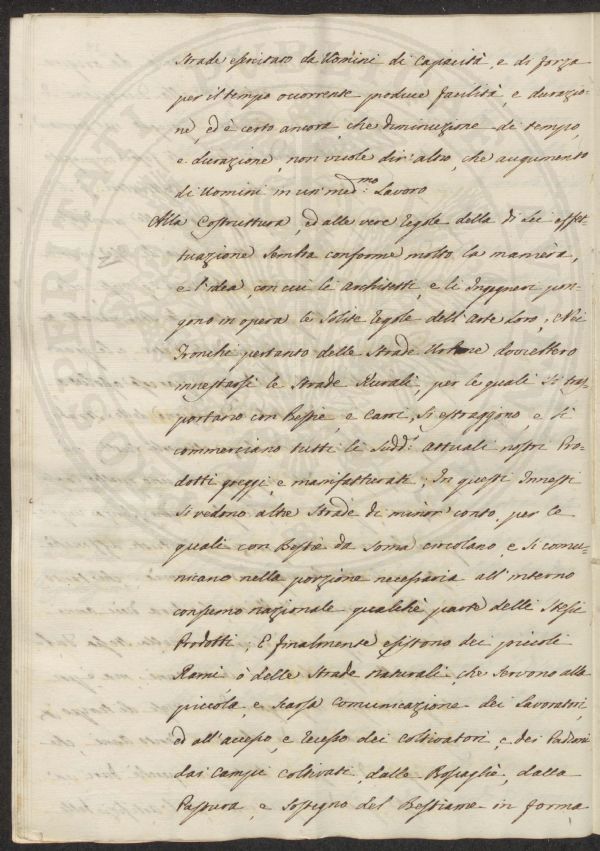 Strade esercitato da Uomini di Capacità, e di forza
per il tempo occorrente produce facilità, e durazio=
ne, ed è certo ancora, che diminuzione di tempo,
e durazione, non vuole dir' altro, che augumento
di Uomini in un med:mo Lavoro
Alla Costruttura, ed alle vere regole della di Lei effet=
tuazione sembra conforme molto la maniera,
e l'idea, con cui le Architetti, e li Ingegneri pon=
gono in opera le solite regole dell'Arte Loro; Nei
Tronchi pertanto delle Strade Urbane dovrettero
innestarsi le Strade Rurali, per le quali si tras=
portano con Bestie, e Carri, si estraggono, e si
commerciano tutti li sudd:i attuali nostri Pro=
dotti greggi, e manifatturati; In questi Innesti
si vedono altre Strade di minor conto, per le
quali con Bestie da Soma circolano, e si comu=
nicano nella porzione necessaria all'interno
consumo nazionale qualche parte delli Stessi
Prodotti; E finalmente esistono dei piccoli
Rami ò delle Strade naturali, che servono alla
piccola, e scarsa comunicazione dei Lavoratori,
ed all'accesso, e recesso dei coltivatori, e dei Padroni
dai Campi coltivati, dalle Boscaglie, dalla
Pastura, e Sostegno del Bestiame in forma
PROSPERITATI